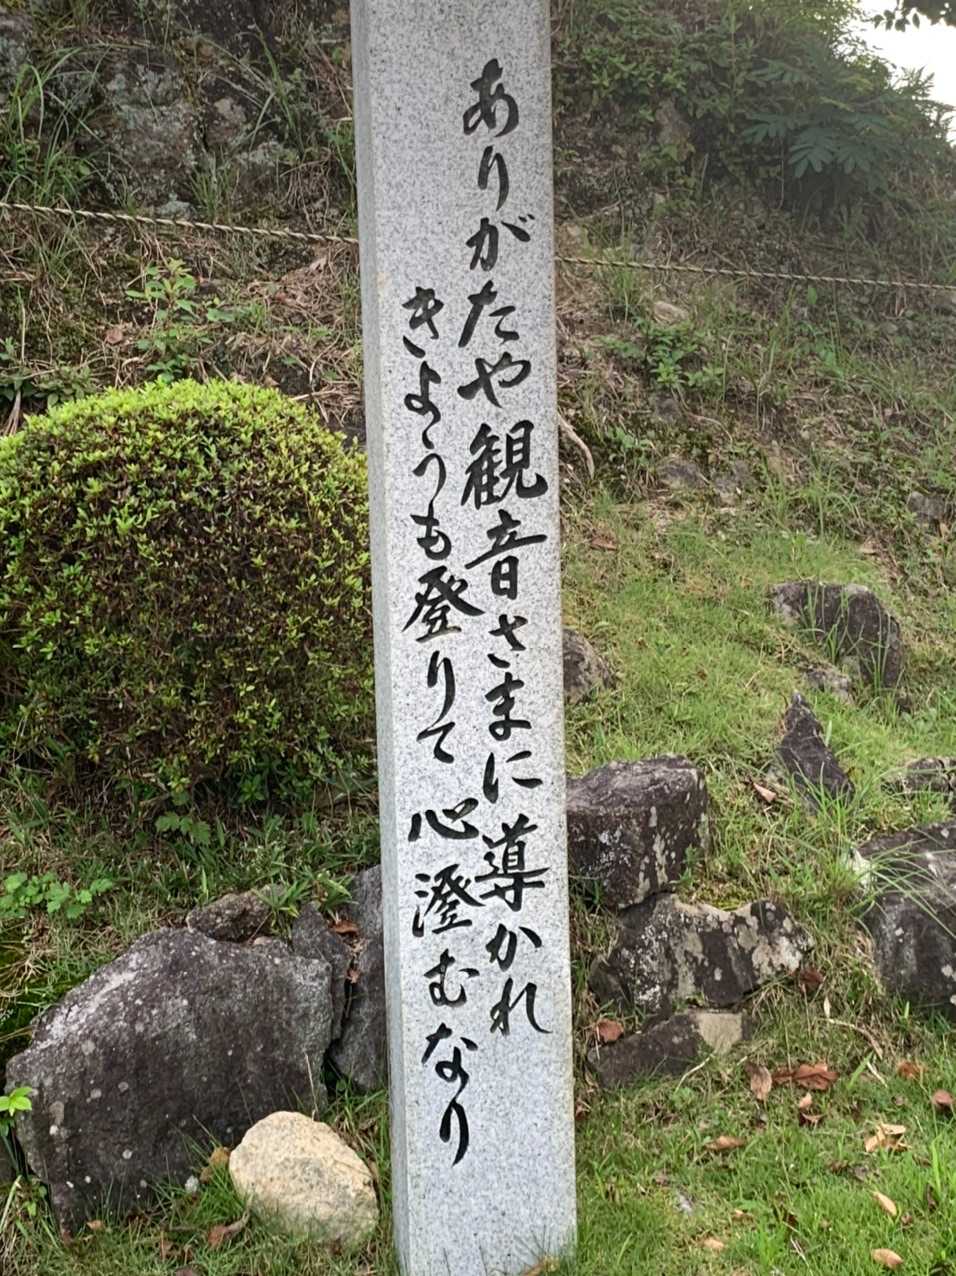 ありがたや観音さまに導かれ
きようも登りて心澄むなり